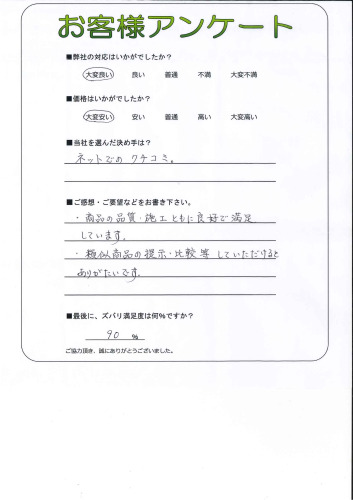 お客様アンケート
■弊社の対応はいかがでしたか？
大変良い 良い 普通 不満 大変不満
■価格はいかがでしたか？
大変安い 安い 普通 高い 大変高い
■当社を選んだ決め手は？
ネットでの クチコミ。
■ご感想・ご要望などをお書き下さい。
・商品の品質・施工ともに良好で満足
しています。
・類似商品の提示・比較等 していただけると
ありがたいです。
■最後に、ズバリ満足度は何%ですか？
90 %
ご協力頂き、誠にありがとうございました。